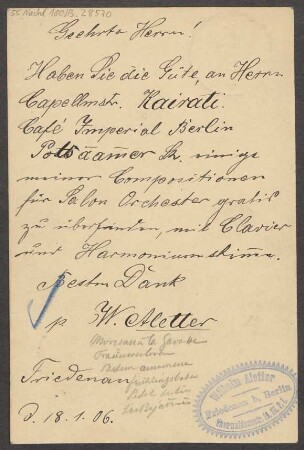 55 Nachl 100/B, 28570
Geehrte Herrn!
Haben Sie die Güte, an Herrn
Capellmstr. Kairati.
Café Imperial Berlin
Potsdammer Str. einige
meiner Compositionen
für Salon Orchester gratis
zu übersenden, mit Clavier
und Harmoniumstimme.
Besten Dank
W. Aletter
Friedenau
d. 18.1.06.
Wilhelm Aletter
Friedenau b. Berlin